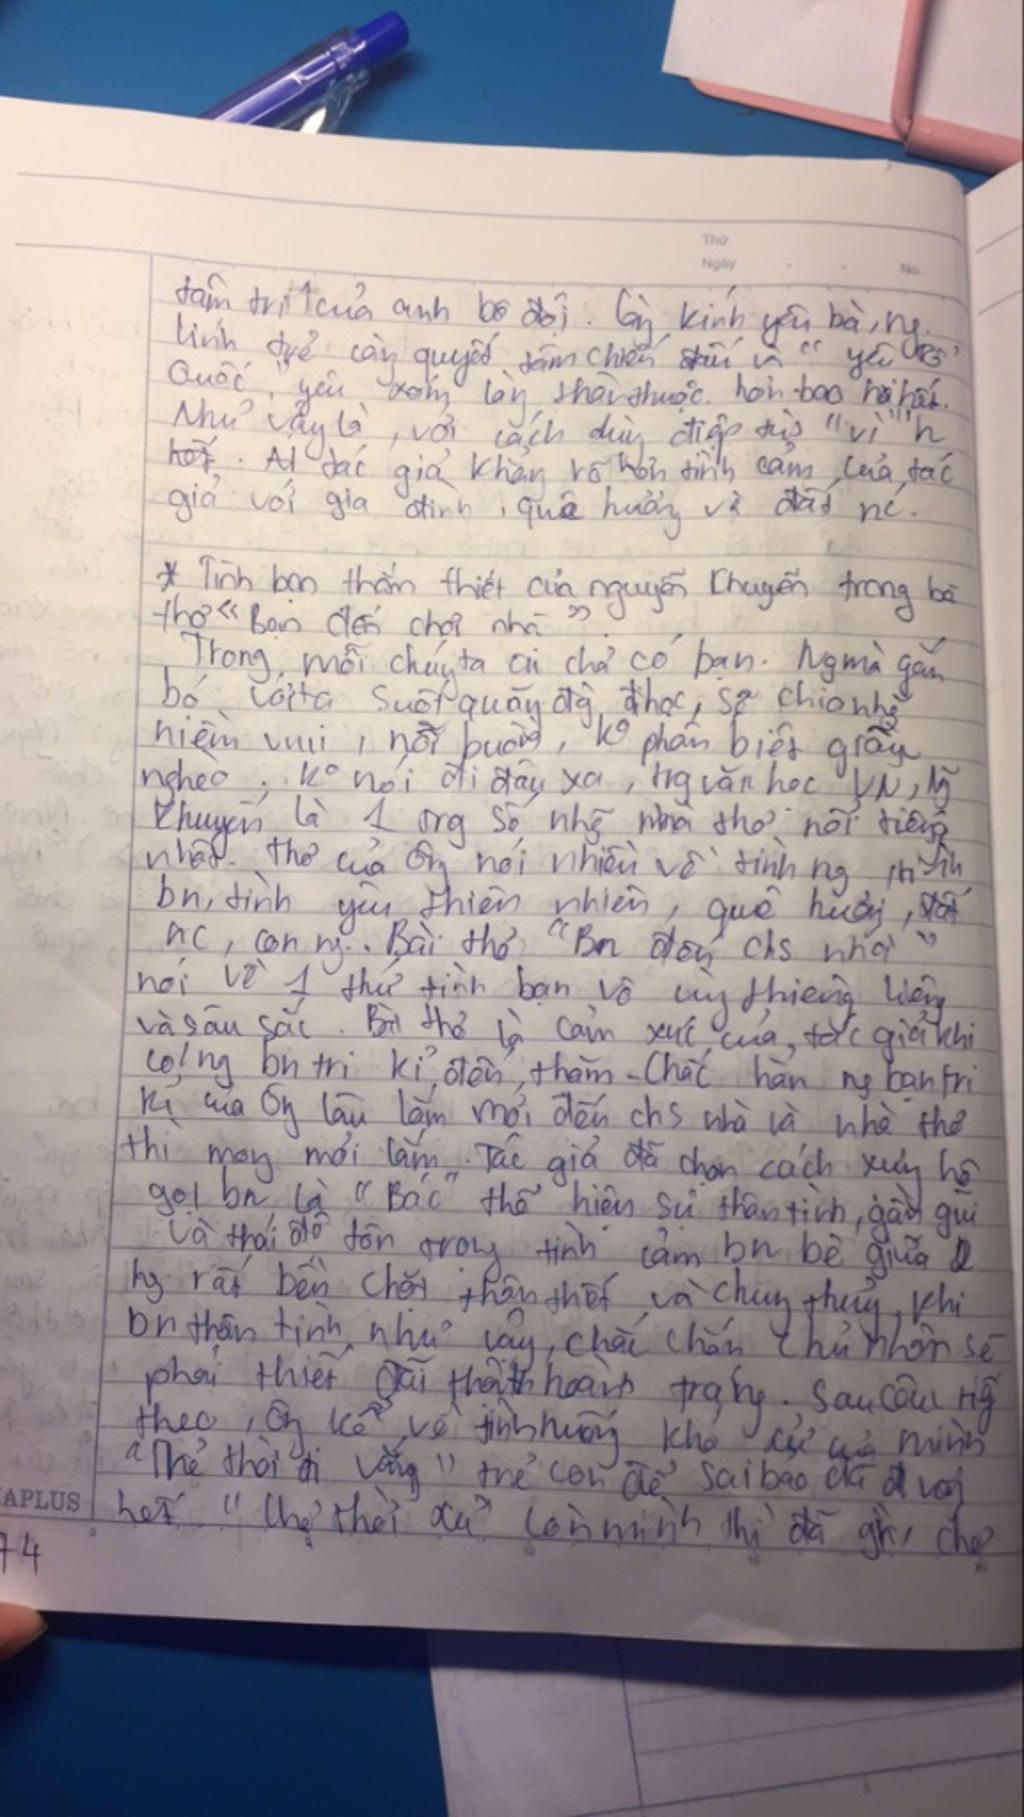 Thứ
Ngày
No.
tâm trí của anh bộ đội. Càg kính yêu bà, ng.
lính trẻ càg quyết tâm chiến đấu vì "yêu Tổ
Quốc", yêu xóm làg thân thuộc hơn bao h hết.
Như vậy là, với cách dùg điệp từ "vì"
tác giả khẳn rõ hơn tình cảm của tác
giả với gia đình, quê hươg và đất nc.
* Tình bạn thắm thiết của nguyễn Khuyến trong bà
thơ "Bạn đến chơi nhà".
Trong mỗi chúg ta ai chả có bạn. Ng mà gắn
bó với ta suốt quãg đg đ học, sẽ chia nhữ
niềm vui, nỗi buồn, ko phân biệt giàu
nghèo. Ko nói đi đâu xa, trg văn học VN, Ng
Khuyến là 1 trg số nhg nhà thơ nổi tiếng
nhất. Thơ của ôg nói nhiều về tình ng, tình
bn, tình yêu thiên nhiên, quê hươg, đất
nc, con ng. Bài thơ "Bn đến chs nhà"
nói về 1 thứ tình bạn vô cùg thiêng liêng
và sâu sắc. Bài thơ là cảm xúc của tác giả khi
có ng bn tri kỉ đến thăm. Chắc hẳn ng bạn tri
kỉ của ôg lâu lắm mới đến chs nhà và nhà thơ
thì mog mỏi lắm. Tác giả đã chọn cách xưg hô
gọi bn là "Bác" thể hiện sự thân tình, gần gũi
và thái độ tôn trọg tình cảm bn bè giữa 2
ng rất bền chặt thân thiết và chug thủy. Khi
bn thân tình như vậy, chắc chắn chủ nhân sẽ
phải thiết đãi thật hoành trág. Sau câu
theo, ôg kể về tình huốg khó xử của mình
"Trẻ thời đi vắng" trẻ con để sai bảo đã đi vắg
hết "Chợ thời xa" còn mình thì đã già, chợ
APLUS
74